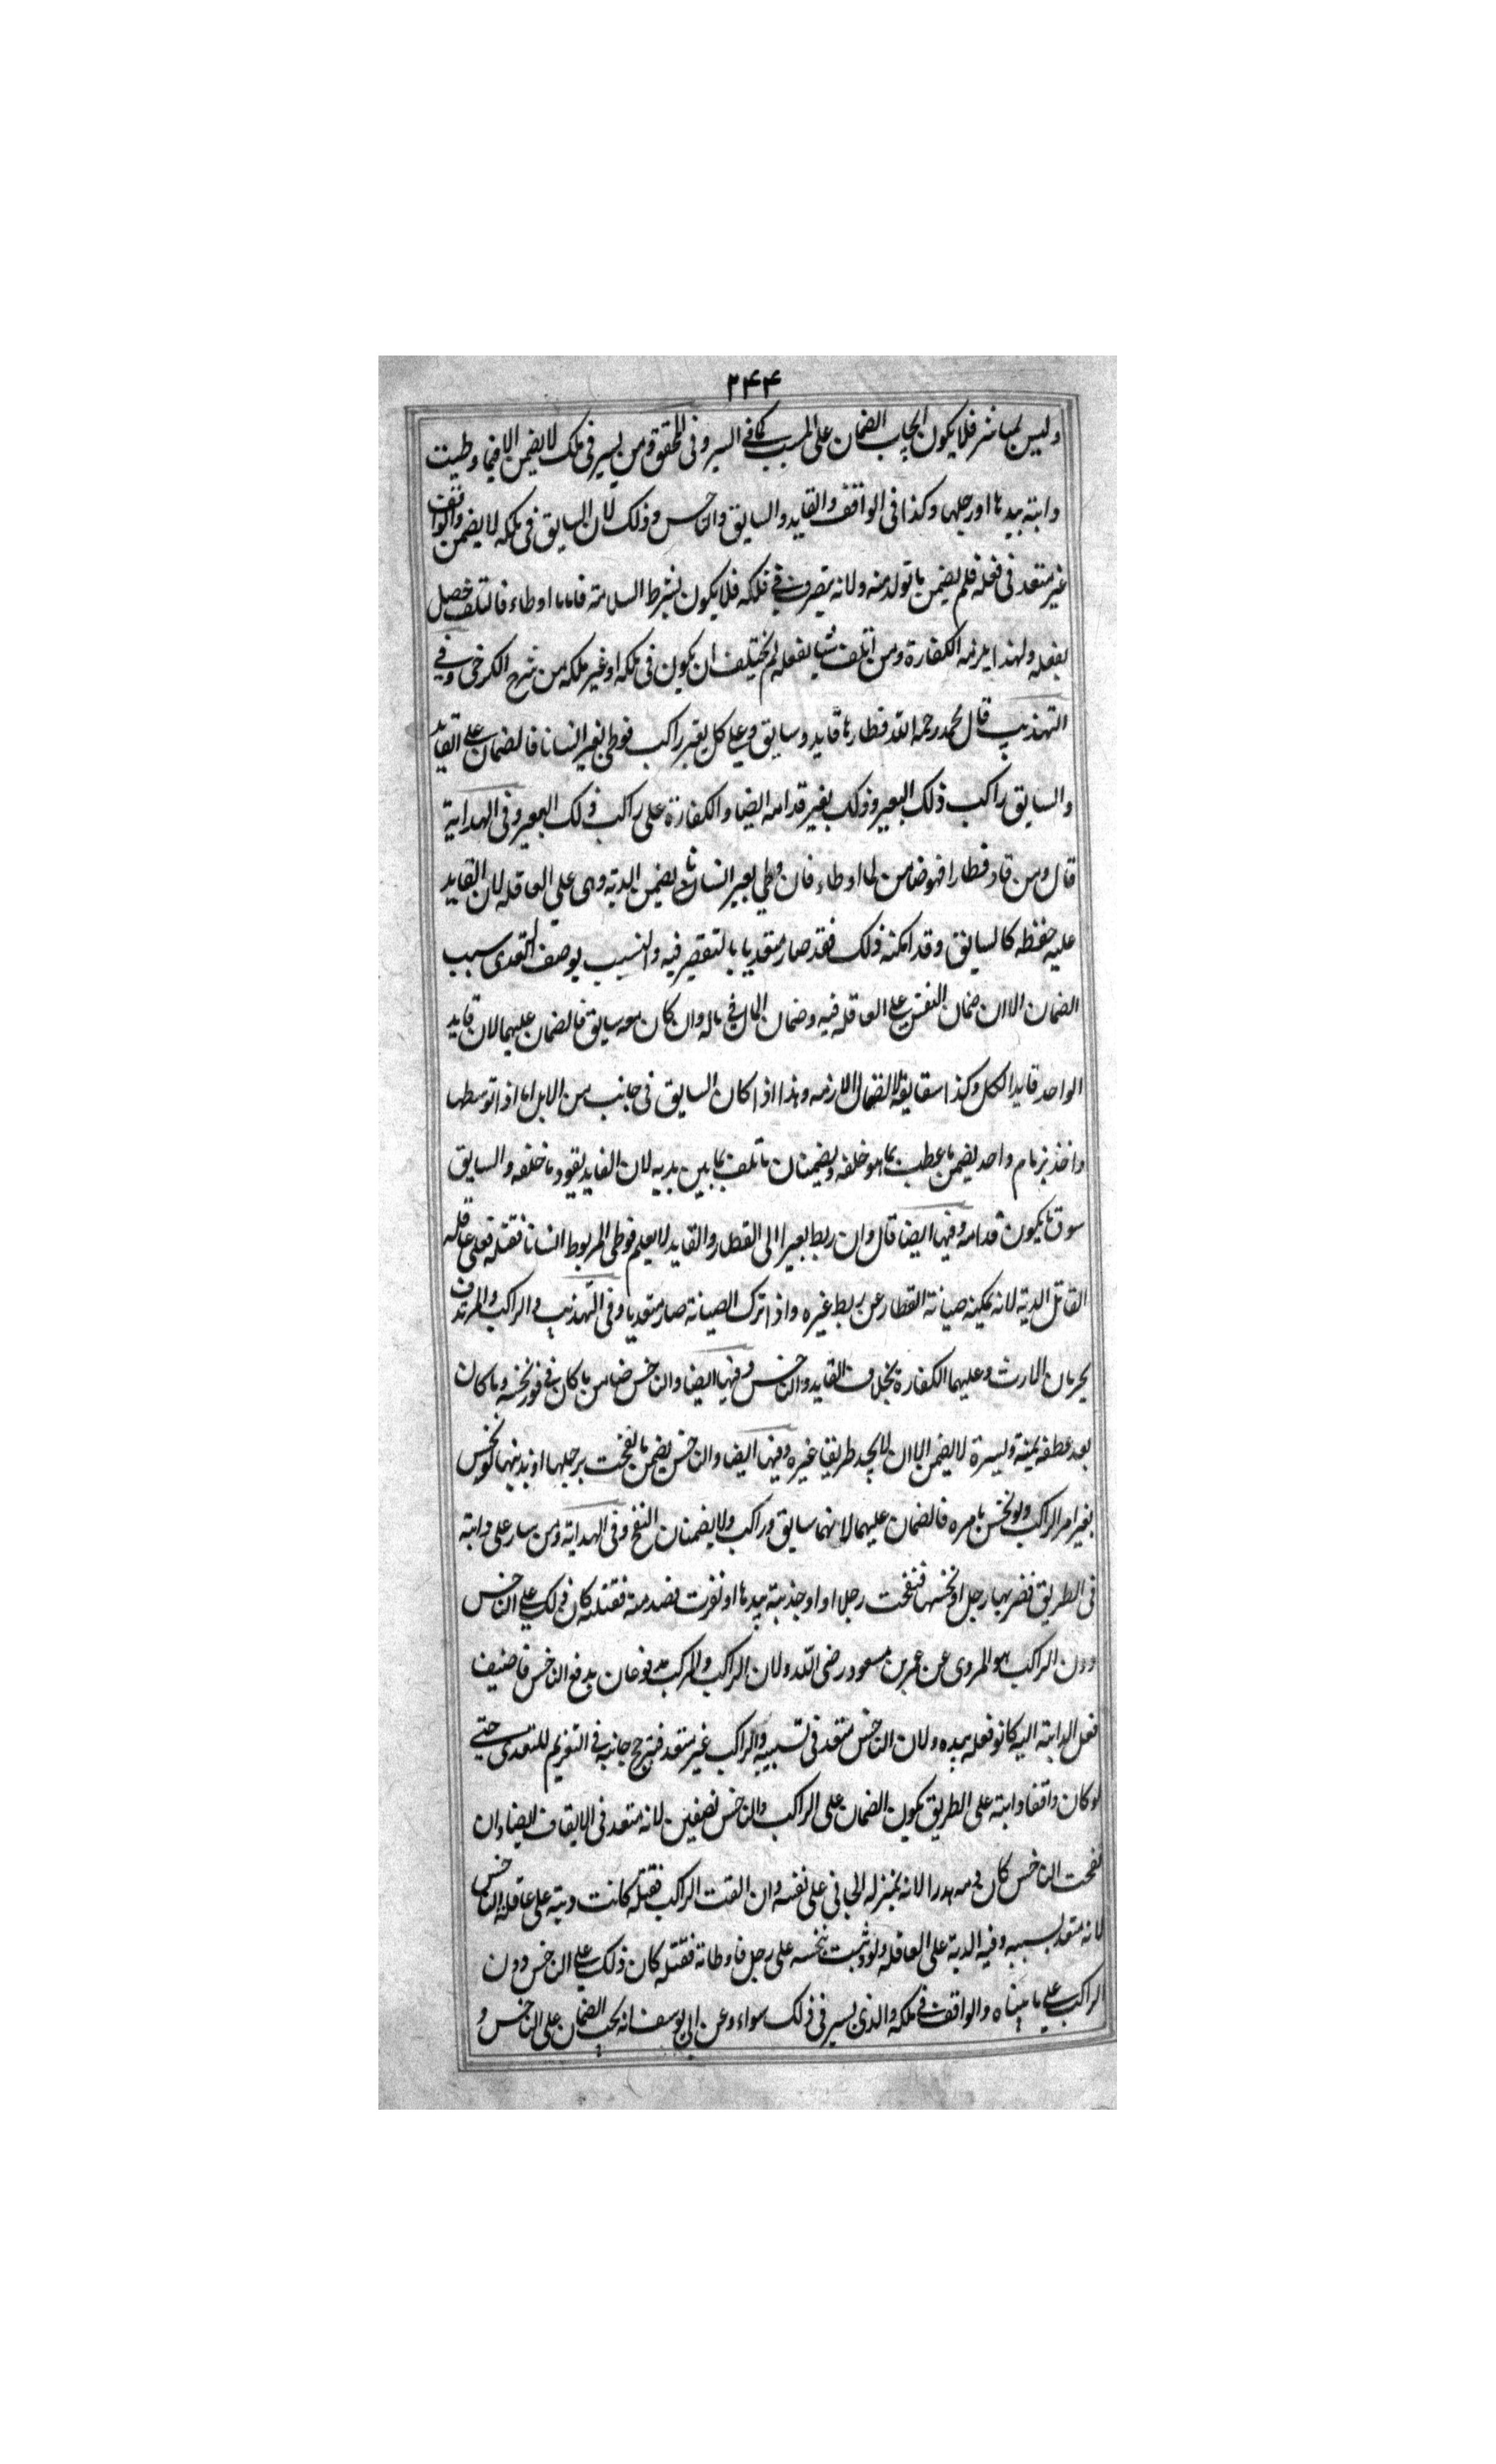 ٢٤٤
وليس بمباشر فلا يكون ايجاب الضمان على المسبب كما في السير وفى المحقق ومن يسير فى ملك لا يضمن الا فيما وطيت
دابته بيدها اورجلها وكذا فى الواقف والقايد والسايق والناخس وذلك لان السايق فى ملكه لا يضمن والواقف
غير متعد فى فعله فلم يضمن ما تولد منه ولانه يتصرف في ملكه فلا يكون بشرط السلامة فاما ما اوطاء فالتلف حصل
بفعله ولهذا يلزمه الكفارة ومن اتلف شيا بفعله لم يختلف ان يكون فى ملكه او غير ملكه من شرح الكرخى وفي
التهذيب قال محمد رحمه الله قطار لها قايد وسايق وعلى كل بعير راكب فوطى بعير انسانا فالضمان على القايد
والسايق راكب ذلك البعير وذلك بغير قدامه ايضا والكفارة على راكب ذلك البعير وفى الهداية
قال ومن قاد قطارا فهو ضامن لما اوطاء فان وطى بعير انسانا يضمن الدية وهى على العاقله لان القايد
عليه حفظه كالسايق وقد امكنه ذلك فقد صار متعديا بالتقصير فيه والتسبيب بوصف التعدى سبب
الضمان الا ان ضمان النفس على العاقله فيه وضمان المال في ماله وان كان معه سايق فالضمان عليهما لان قايد
الواحد قايد الكل وكذا سقايقه لاتصال الازمه وهذا اذا كان السايق فى جانب من الابل اما اذا توسطها
واخذ بزمام واحد يضمن ما عطب بما هو خلفه ويضمنان ما تلف بما بين يديه لان القايد يقود ما خلفه والسايق
سوق ما يكون قدامه وفيها ايضا قال وان ربط بعيرا الى القطار والقايد لا يعلم فوطى المربوط انسانا فقتله فعلى عاقله
القاتل الدية لانه يمكينه صيانة القطار عن ربط غيره واذا ترك الصيانة صار متعديا وفى التهذيب والراكب والمرتدف
يحرمان الارث وعليهما الكفارة بخلاف القايد والناخس وفيها ايضا والناخس ضامن ما كان في فور نخسه وما كان
بعد عطفه يمينة ويسرة لا يضمن الا ان لا يجد طريقا غيره وفيها ايضا والناخس يضمن ما نفحت برجلها او بذنبها لو نخس
بغير امر الراكب ولو نخس بامره فالضمان عليهما لانهما سايق وراكب ولا يضمنان النفح وفى الهداية ومن سار على دابته
فى الطريق فضربها رجل او نخسها فنفحت رجلا او جذبته بيدها او نفرت فصدمته فقتلته كان ذلك على الناخس
دون الراكب هو المروى عن عمر بن مسعود رضى الله ولان الراكب والمركب مدفوعان بدفع الناخس فاضيف
فعل الدابته اليه كانو فعله بيده ولان الناخس متعد فى تسبيبه والراكب غير متعد فيترجح جانبه في التغريم للتعدى حتى
لوكان واقفا دابته على الطريق يكون الضمان على الراكب والناخس نصفين لانه متعد فى الايقاف ايضا وان
نفحت الناخس كان دمه هدرا لانه بمنزله الجانى على نفسه وان القت الراكب فقتله كانت ديته على عاقله الناخس
لانه متعد بسببه وفيه الدية على العاقله ولو وثبت بنخسه على رجل فاوطاته فقتله كان ذلك على الناخس دون
الراكب على ما بيناه والواقف في ملكه والذى يسير فى ذلك سواء وعن ابى يوسف انه يجب الضمان على الناخس و